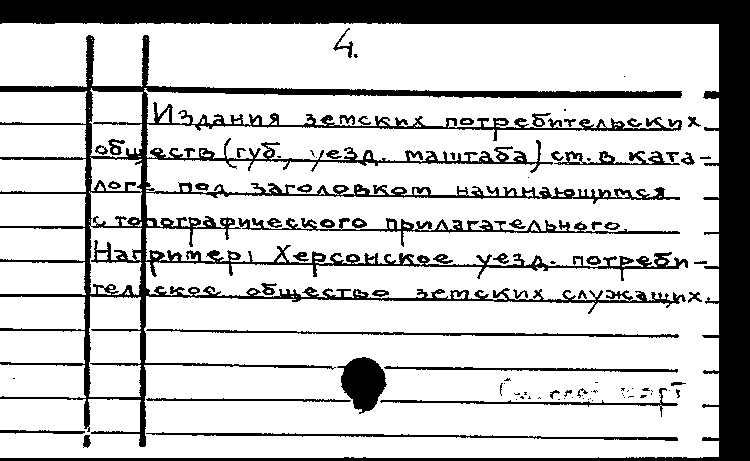 4.
Издания земских потребительских
обществ (губ., уезд. маштаба) см. в ката-
логе под заголовком начинающимся
с топографического прилагательного.
Например: Херсонское уезд. потреби-
тельское общество земских служащих.
См. след. карт